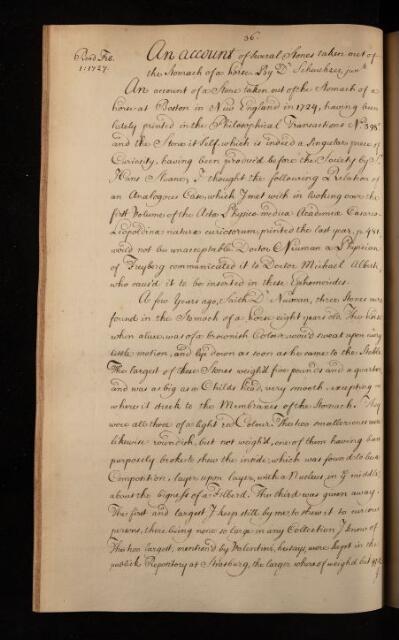 36.
Read Feb.
1. 1727.
An account of several Stones taken out of
the Stomach of a horse By Dr Scheuchzer, junr
An account of a Stone taken out of the Stomach of a
horse at Boston in New England in 1724, having been
lately printed in the Philosophical Transactions No. 398
and the Stone it Self, which is indeed a Singular piece of
Curiosity, having been produced before the Society by Sr
Hans Sloane, I thought the following Relation of
an Analogous Case, which I met with in looking over the
first Volume of the Acta Physico-medica Academiæ Cæsareo
Leopoldinæ naturæ curiosorum, printed the last year, p. 451
would not be unacceptable. Doctor Neuman a Physician
of Freyberg communicated it to Doctor Michael Alberti,
who caus'd it to be inserted in these Ephemerides.
A few Years ago, Saith Dr Neuman, three Stones were
found in the Stomach of a horse eight years old. The horse
when alive was of a brownish Colour, would sweat upon every
little motion, and lye down as soon as he came to the Stable
The largest of these Stones weigh'd five pounds and a quarter
and was as big as a Childs head, very smooth, excepting
where it stuck to the Membranes of the Stomach. They
were all three of a light red Colour. The two smaller ones were
likewise roundish, but not weigh'd, one of them having been
purposely broke to shew the inside, which was found to be a
Composition, layer upon layer, with a Nucleus in ye middle
about the bigness of a Filberd. The third was given away.
The first and largest I keep still by me, to shew it to curious
persons, there being none so large in any Collection I know of
The two largest, mention'd by Valentini, he says, were kept in the
publick Repository at Strasburg, the larger whereof weigh'd but